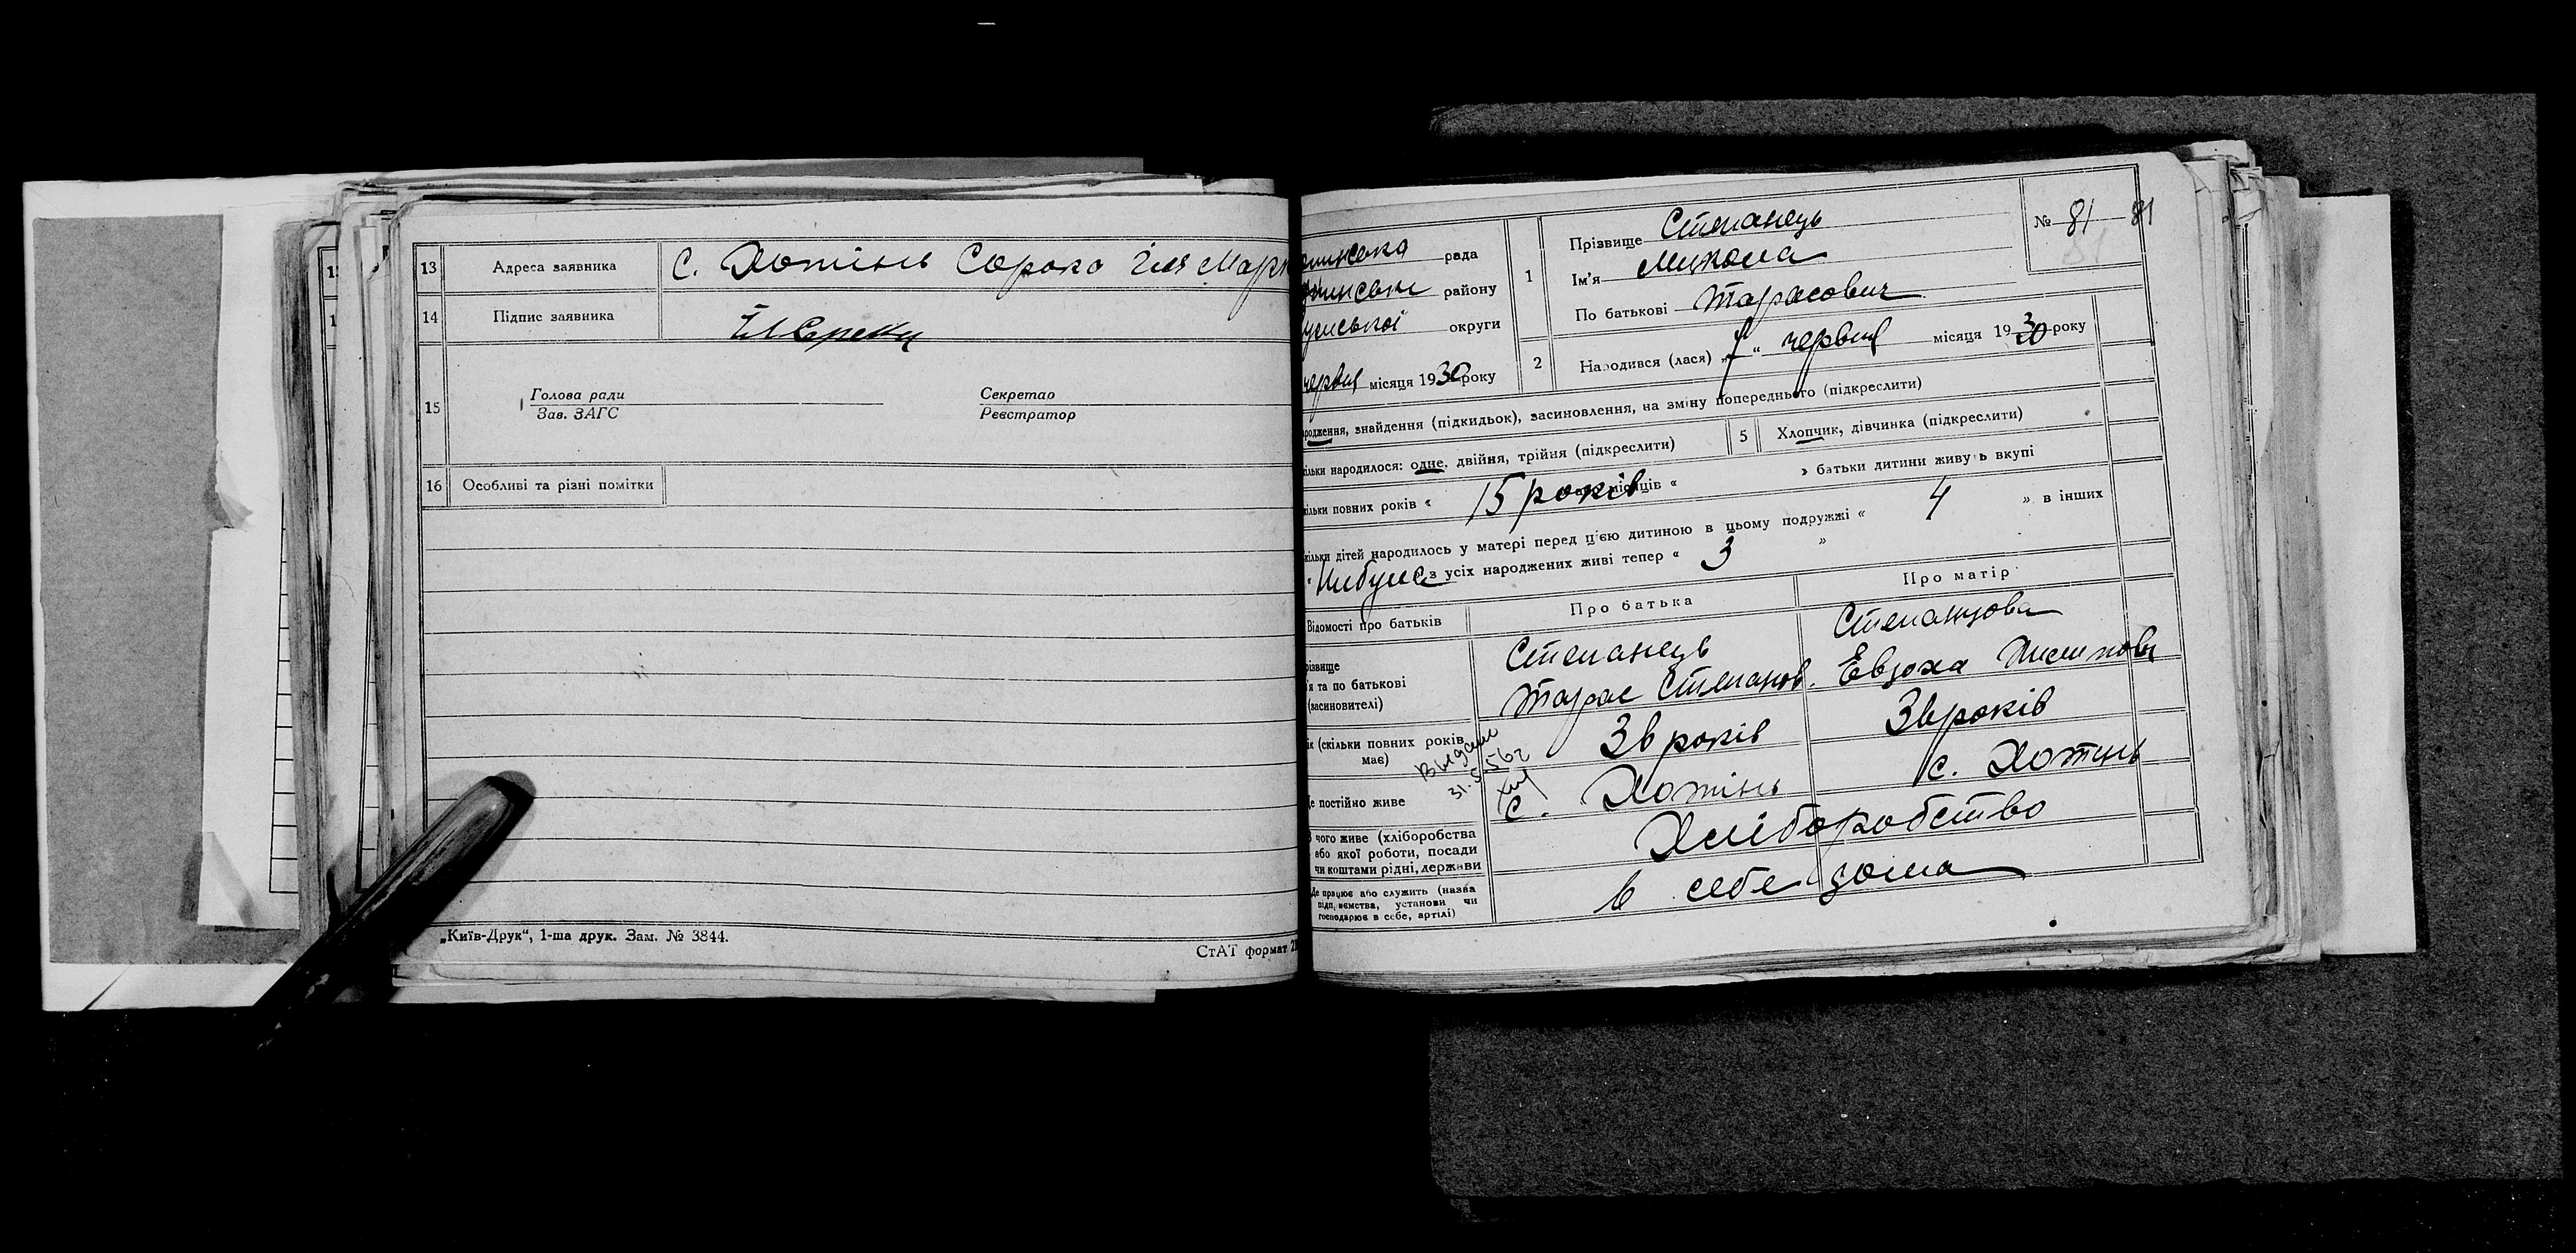 13 Адреса заявника С. Хотінь Сорока Ілля Марк
14 Підпис заявника
15 Голова ради Секретар
Зав. ЗАГС Реєстратор
16 Особливі та різні помітки
„Київ-Друк“, 1-ша друк. Зам. № 3844.
СтАТ формат
рада
району
округи
червня місяця 1930 року
1 Прізвище Степанець
Ім'я Микола
По батькові Тарасович
№ 81 81
2 Народився (лася) „ “ червня місяця 1930 року
родження, знайдення (підкидьок), засиновлення, на зміну попереднього (підкреслити)
ільки народилося: одне, двійня, трійня (підкреслити) 5 Хлопчик, дівчинка (підкреслити)
ільки повних років « 15 років місяців « » батьки дитини живуть вкупі
ільки дітей народилось у матері перед цією дитиною в цьому подружжі « 4 » в інших
« з усіх народжених живі тепер « 3 »
Відомості про батьків Про батька Про матір
різвище Степанець Степанцова
я та по батькові Тарас Степанов. Евдоха
(засиновителі)
ік (скільки повних років має) 36 років 36 років
Видано
31.5.56 г
е постійно живе с. Хотінь с. Хотінь
чого живе (хліборобства або якої роботи, посади чи коштами рідні, держави Хліборобство
Де працює або служить (назва підприємства, установи чи господарює в себе, артілі) в себе дома